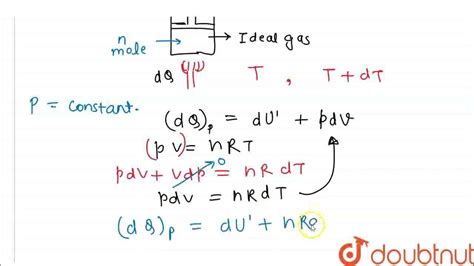 n
mole
Ideal gas
dQ T , T + dT
P = constant.
(dQ)p = dU' + pdv
(pv) = nRT
pdv + vdp = nRdT
0
pdv = nRdT
(dQ)p = dU' + nR
doubtnut